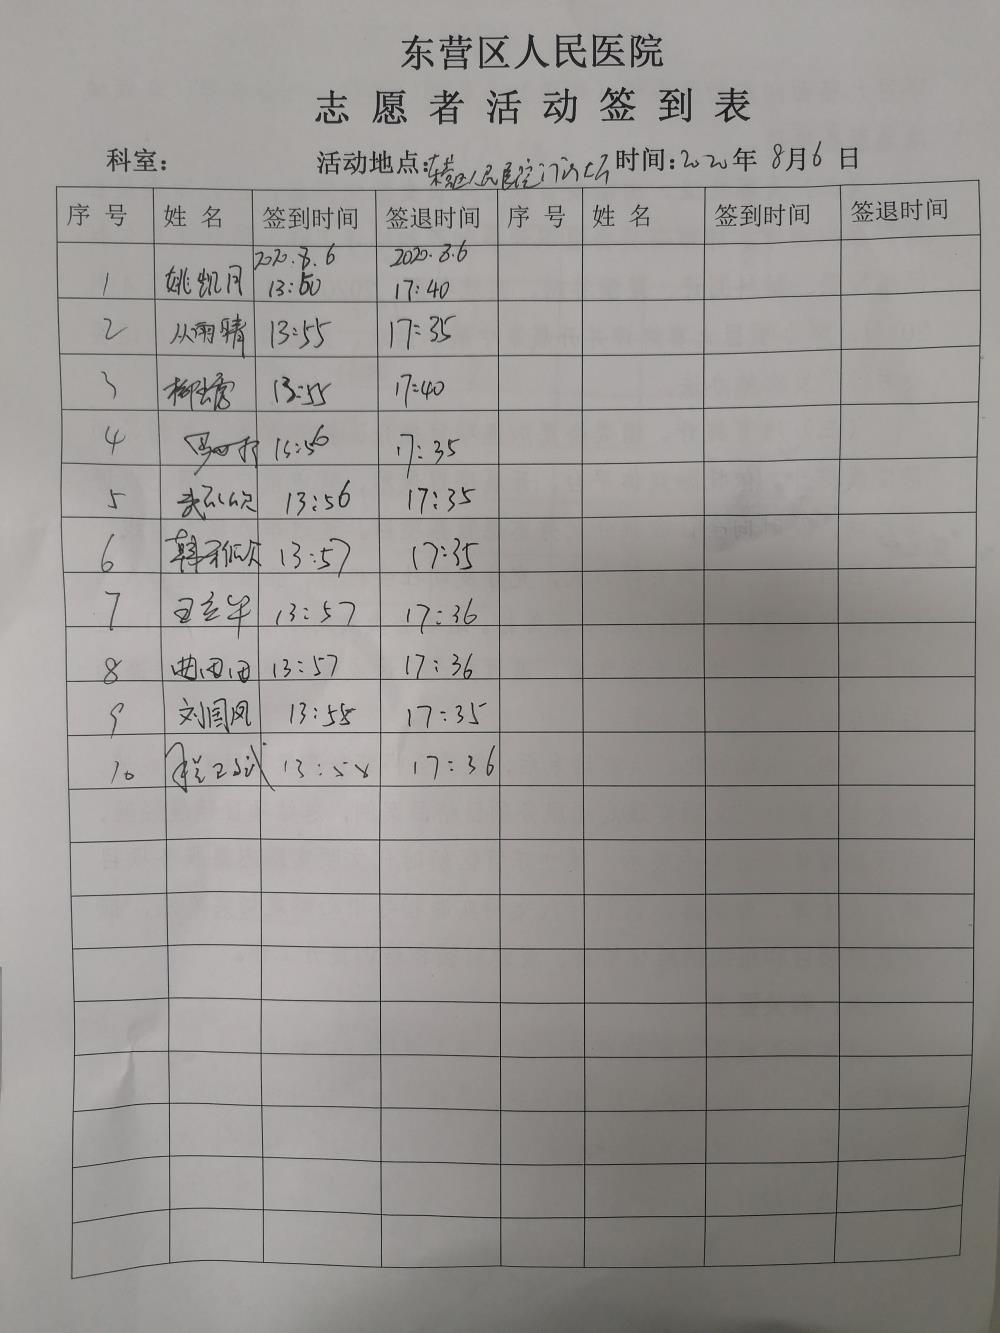 东营区人民医院
志愿者活动签到表
科室: 活动地点:东营区人民医院门诊大厅 时间:2020年 8月6日
序号 姓名 签到时间 签退时间 序号 姓名 签到时间 签退时间
2020.8.6 2020.8.6
1 姚凯月 13:50 17:40
2 从雨晴 13:55 17:35
3 13:55 17:40
4 13:56 17:35
5 13:56 17:35
6 韩 13:57 17:35
7 王 13:57 17:36
8 曲田田 13:57 17:36
9 刘国凤 13:58 17:35
10 13:58 17:36